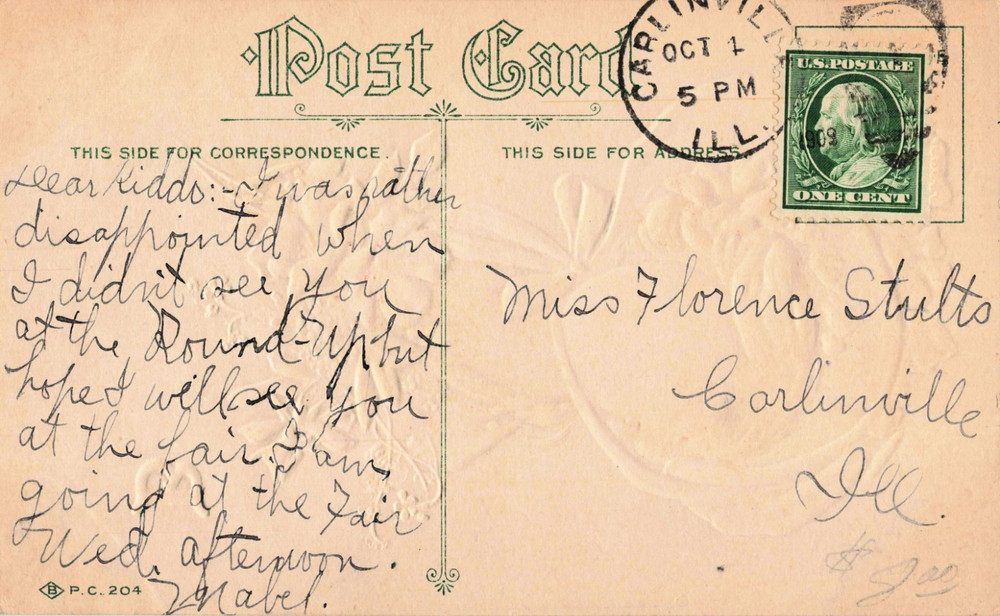 Post Card
CARLINVILLE
OCT 1
5 PM
ILL.
1909
U.S. POSTAGE
ONE CENT
THIS SIDE FOR CORRESPONDENCE.
THIS SIDE FOR ADDRESS
Dear Kiddo:- I was rather
disappointed when
I didn't see you
at the Round-Up but
hope I will see you
at the fair. I am
going at the Fair
Wed. afternoon.
Mabel.
Miss Florence Stults
Carlinville
Ill.
B P.C. 204